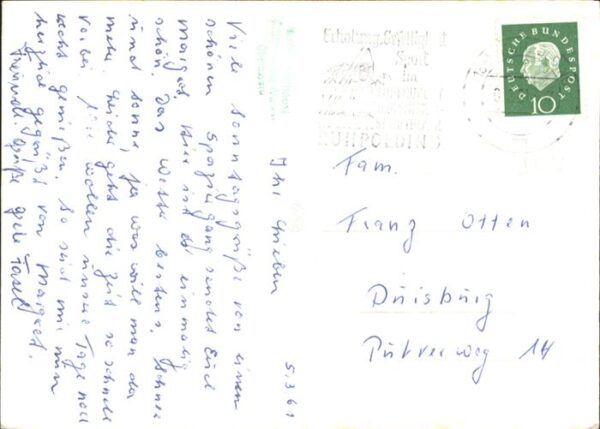 Ihr Lieben
5.3.61
Viele Sonntagsgrüße von einem
schönen Spaziergang sendet Euch
Margret. Hier ist es einmalig
schön. Das Wetter bestens. Schnee
und Sonne, ja was will man da
mehr. Leider geht die Zeit so schnell
vorbei. Wir wollen unsere Tage noch
recht genießen. So seid mir nun
herzlich gegrüßt von Margret.
Grüße
DEUTSCHE BUNDESPOST
10
Erholung, Geselligkeit
Sport
im
RUHPOLDING
Fam.
Franz Otten
Duisburg
14